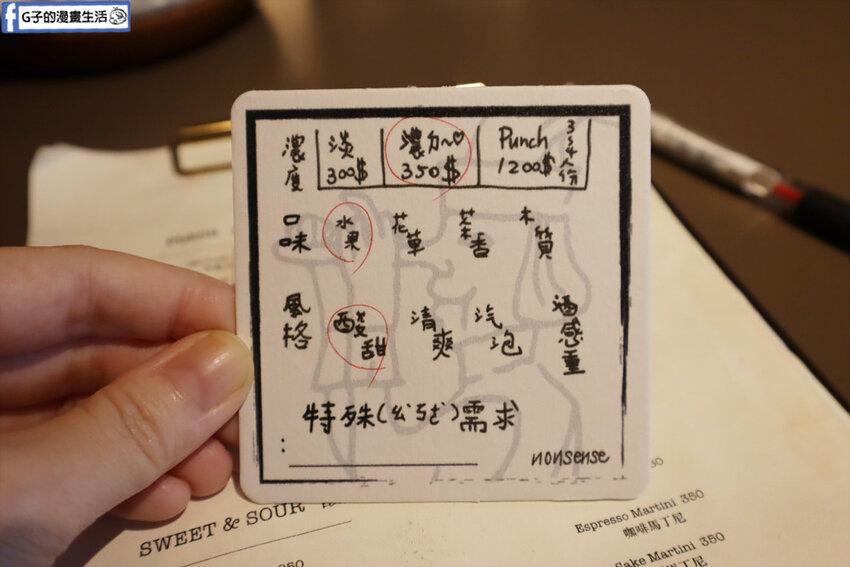 G子的漫畫生活
濃度 淡 300$ 濃ㄉ~♡ 350$ Punch 1200$ 3~4人份
口味 水果 花草 茶香 木質
風格 酸甜 清爽 汽泡 酒感重
特殊(ㄍㄎㄜˋ)需求
:
nonsense
SWEET & SOUR
Espresso Martini 350
咖啡馬丁尼
Sake Martini 350